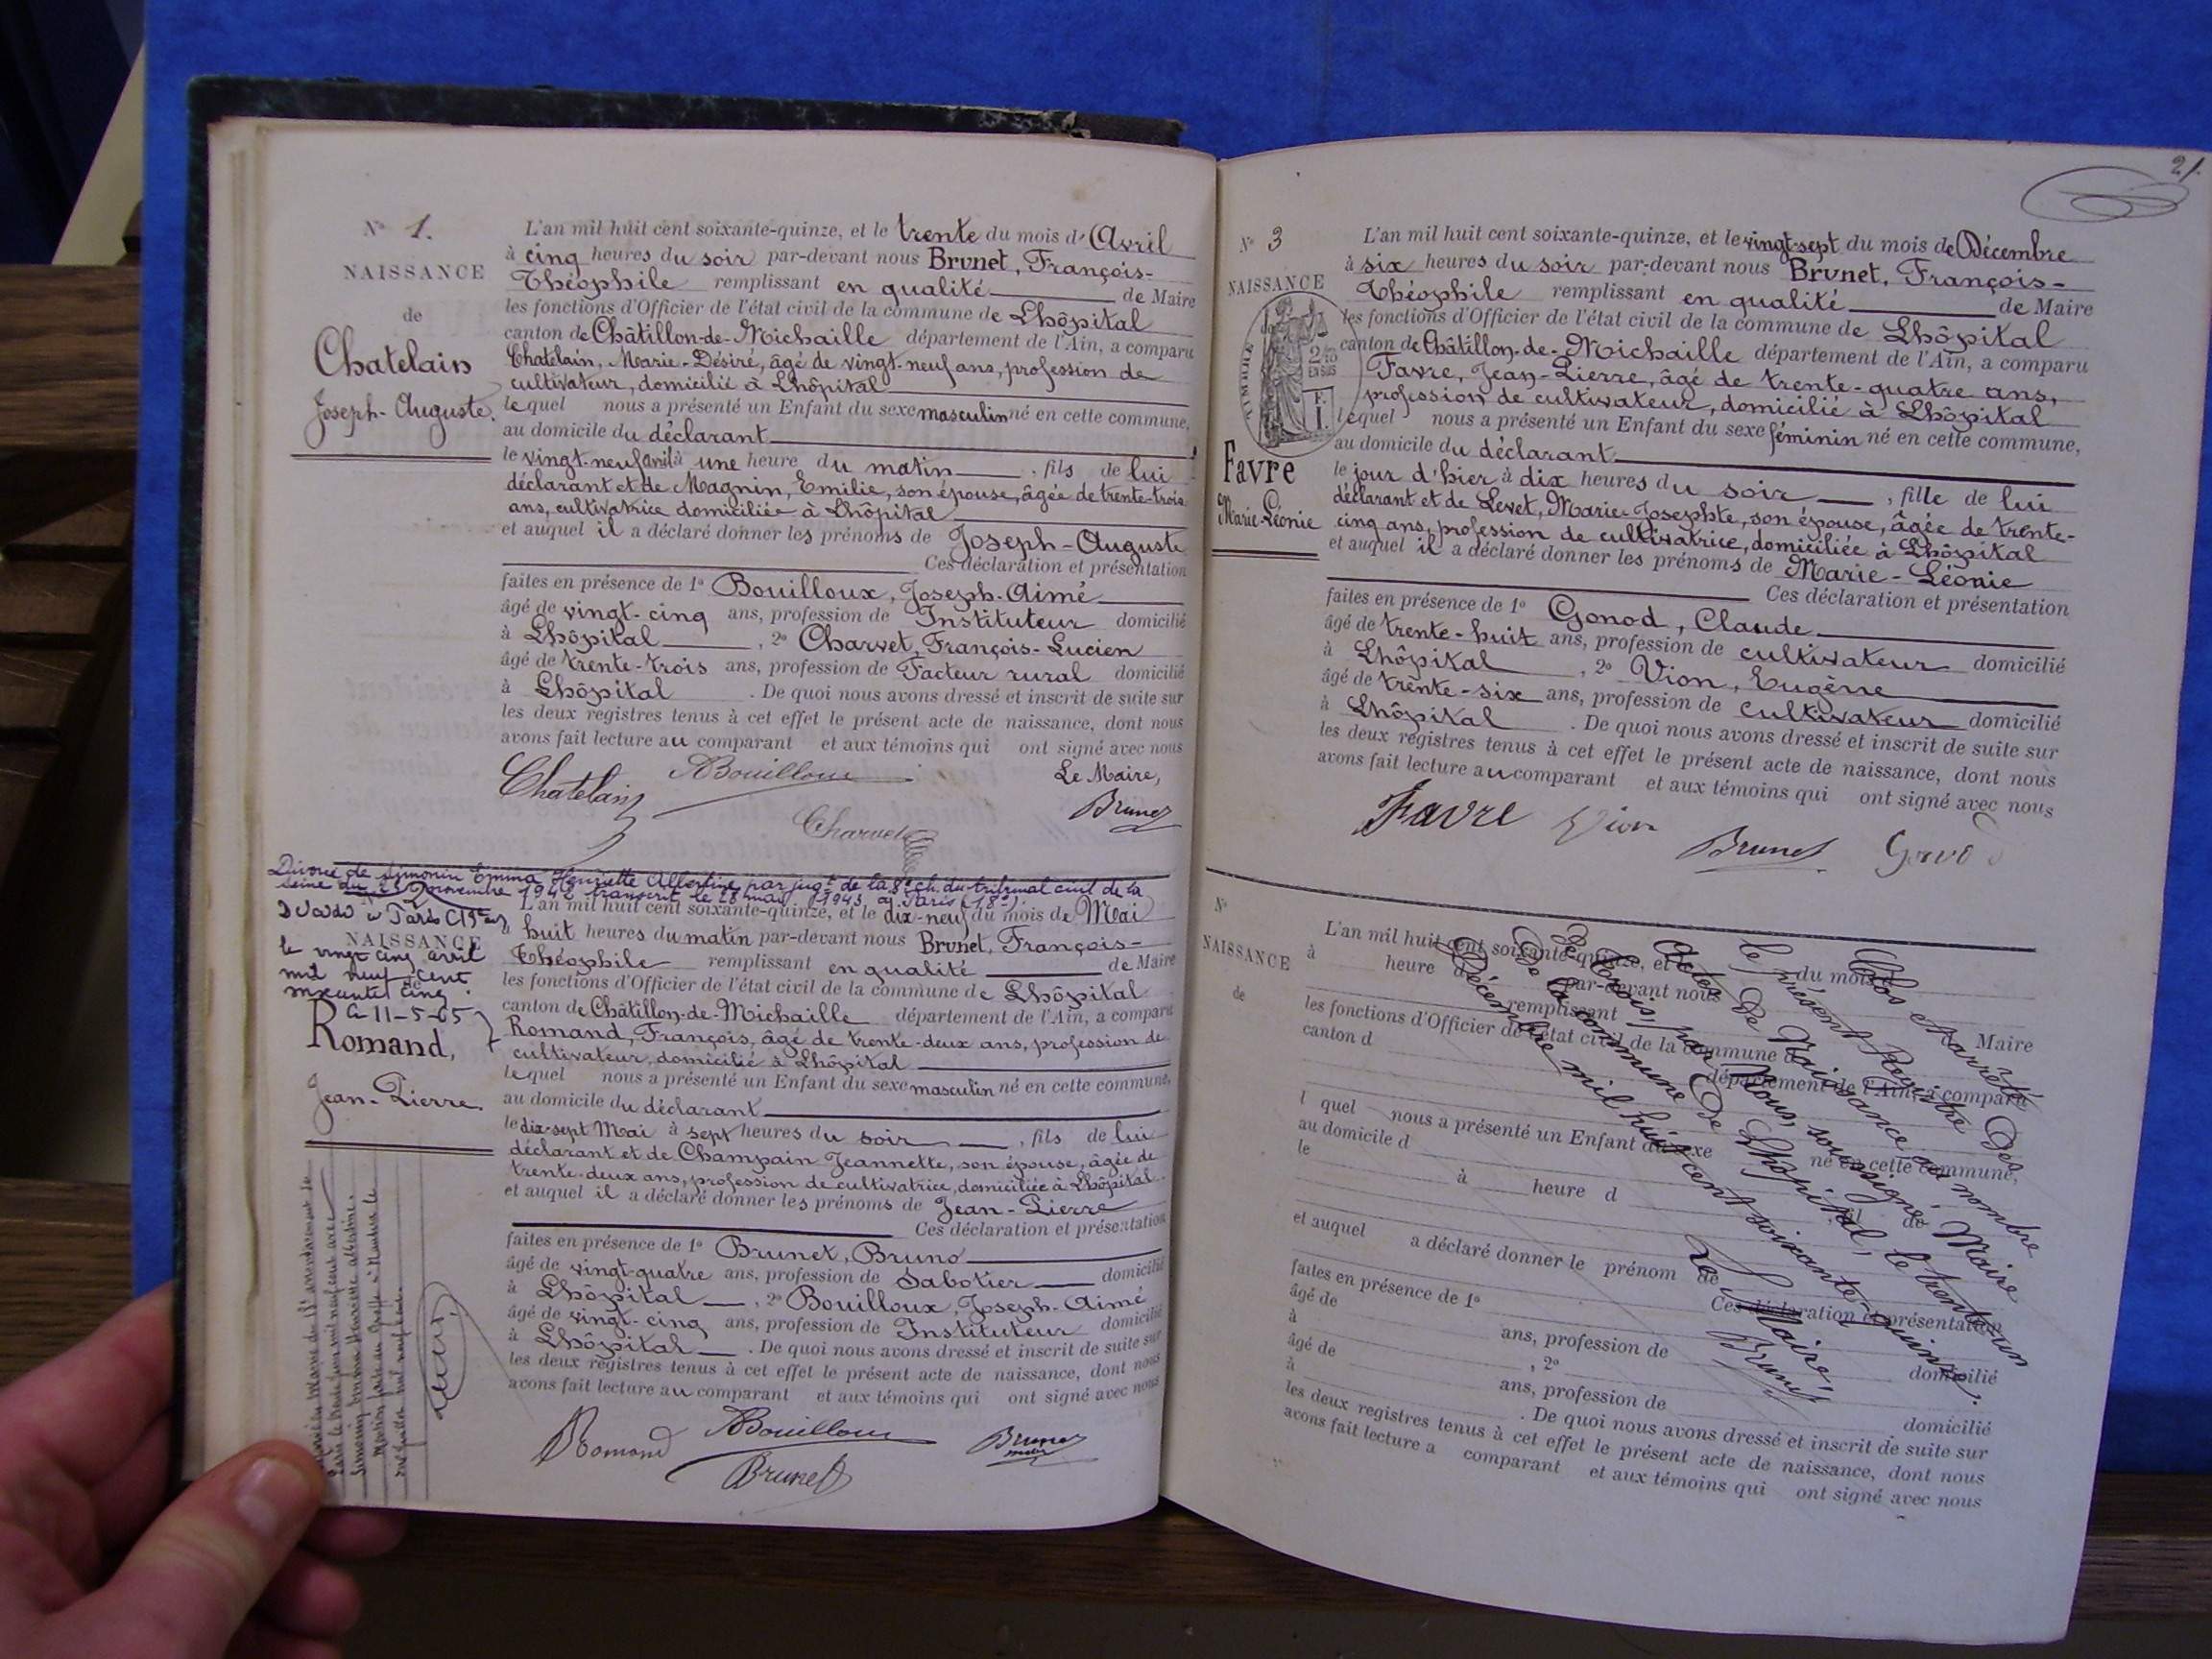 N° 1.
NAISSANCE
de
Chatelain
Joseph-Auguste.
L'an mil huit cent soixante-quinze, et le trente du mois d'Avril
à cinq heures du soir par-devant nous Brunet, François-
Théophile remplissant en qualité de Maire
les fonctions d'Officier de l'état civil de la commune de Lhôpital
canton de Châtillon-de-Michaille département de l'Ain, a comparu
Chatelain, Marie-Désiré, âgé de vingt-neuf ans, profession de
cultivateur, domicilié à Lhôpital
lequel nous a présenté un Enfant du sexe masculin né en cette commune,
au domicile du déclarant
le vingt-neuf avril à une heure du matin , fils de lui
déclarant et de Magnin, Emilie, son épouse, âgée de trente-trois
ans, cultivatrice domiciliée à Lhôpital
et auquel il a déclaré donner les prénoms de Joseph-Auguste
Ces déclaration et présentation
faites en présence de 1° Bouilloux, Joseph-Aimé
âgé de vingt-cinq ans, profession de Instituteur domicilié
à Lhôpital , 2° Charvet, François-Lucien
âgé de trente-trois ans, profession de Facteur rural domicilié
à Lhôpital . De quoi nous avons dressé et inscrit de suite sur
les deux registres tenus à cet effet le présent acte de naissance, dont nous
avons fait lecture au comparant et aux témoins qui ont signé avec nous
Chatelain ABouilloux Le Maire,
Charvet Brunet
Divorcé de Simonin Emma Henriette Albertine par jugt de la 8e ch. du tribunal civil de la
Seine du novembre 1942 transcrit le 28 mars 1943 à Paris (18e)
Décédé à Paris (15e)
le vingt cinq avril
mil neuf cent
soixante cinq.
NAISSANCE
de
11-5-65
Romand,
Jean-Pierre.
L'an mil huit cent soixante-quinze, et le dix-neuf du mois de Mai
à huit heures du matin par-devant nous Brunet, François-
Théophile remplissant en qualité de Maire
les fonctions d'Officier de l'état civil de la commune de Lhôpital
canton de Châtillon-de-Michaille département de l'Ain, a comparu
Romand, François, âgé de trente-deux ans, profession de
cultivateur, domicilié à Lhôpital
lequel nous a présenté un Enfant du sexe masculin né en cette commune,
au domicile du déclarant
le dix-sept Mai à sept heures du soir , fils de lui
déclarant et de Champain Jeannette, son épouse, âgée de
trente-deux ans, profession de cultivatrice, domiciliée à Lhôpital
et auquel il a déclaré donner les prénoms de Jean-Pierre
Ces déclaration et présentation
faites en présence de 1° Brunet, Bruno
âgé de vingt-quatre ans, profession de Sabotier domicilié
à Lhôpital , 2° Bouilloux, Joseph-Aimé
âgé de vingt-cinq ans, profession de Instituteur domicilié
à Lhôpital . De quoi nous avons dressé et inscrit de suite sur
les deux registres tenus à cet effet le présent acte de naissance, dont nous
avons fait lecture au comparant et aux témoins qui ont signé avec nous
Romand ABouilloux Brunet
Brunet maire
21.
N° 3
NAISSANCE
TIMBRE
2/10
EN SUS
Favre
Marie-Léonie
L'an mil huit cent soixante-quinze, et le vingt-sept du mois de Décembre
à six heures du soir par-devant nous Brunet, François-
Théophile remplissant en qualité de Maire
les fonctions d'Officier de l'état civil de la commune de Lhôpital
canton de Châtillon-de-Michaille département de l'Ain, a comparu
Favre, Jean-Pierre, âgé de trente-quatre ans,
profession de cultivateur, domicilié à Lhôpital
lequel nous a présenté un Enfant du sexe féminin né en cette commune,
au domicile du déclarant
le jour d'hier à dix heures du soir , fille de lui
déclarant et de Levet, Marie-Josephte, son épouse, âgée de trente-
cinq ans, profession de cultivatrice, domiciliée à Lhôpital
et auquel il a déclaré donner les prénoms de Marie-Léonie
Ces déclaration et présentation
faites en présence de 1° Gonod, Claude
âgé de trente-huit ans, profession de cultivateur domicilié
à Lhôpital , 2° Vion, Eugène
âgé de trente-six ans, profession de cultivateur domicilié
à Lhôpital . De quoi nous avons dressé et inscrit de suite sur
les deux registres tenus à cet effet le présent acte de naissance, dont nous
avons fait lecture au comparant et aux témoins qui ont signé avec nous
Favre Vion Brunet Gonod
N°
NAISSANCE
de
L'an mil huit cent soixante-quinze, et le du mois
à heure d par-devant nous
remplissant Maire
les fonctions d'Officier de l'état civil de la commune d
canton d département de l'Ain, a comparu
l quel nous a présenté un Enfant du sexe né en cette commune,
au domicile d
le à heure d , fil de
et auquel a déclaré donner le prénom de
Ces déclaration et présentation
faites en présence de 1°
âgé de ans, profession de domicilié
à , 2°
âgé de ans, profession de domicilié
à . De quoi nous avons dressé et inscrit de suite sur
les deux registres tenus à cet effet le présent acte de naissance, dont nous
avons fait lecture a comparant et aux témoins qui ont signé avec nous
Clos et arrêté
le présent Registre des
actes de Naissance au nombre
de trois, par Nous, soussigné, Maire
de la commune de Lhôpital, le trente-un
Décembre mil huit cent soixante-quinze.
Le Maire,
Brunet